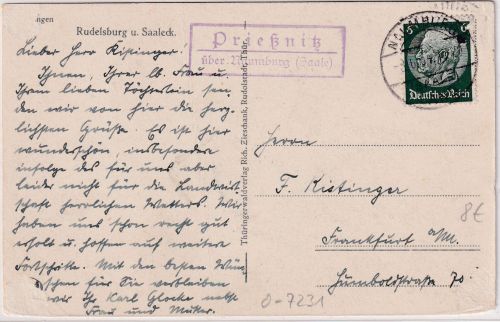 ngen
Rudelsburg u. Saaleck.
Lieber Herr Kistinger!
Ihnen, Ihrer lb. Frau u.
Ihrem lieben Töchterlein sen-
den wir von hier die herz-
lichsten Grüße. Es ist hier
wunderschön, insbesondere
infolge des für uns aber
leider nicht für die Landwirt-
schaft herrlichen Wetters. Wir
haben uns schon recht gut
erholt u. hoffen auf weitere
Fortschritte. Mit den besten Wün-
schen für Sie verbleiben
wir Ihr Karl Glocke nebst
Frau und Mutter.
Thüringerwaldverlag Rich. Zieschank, Rudolstadt
Prießnitz
über Naumburg (Saale)
NAUMBURG
Deutsches Reich
Herrn
F. Kistinger
Frankfurt a/M.
Humboldtstraße 70.
8€
0-7231